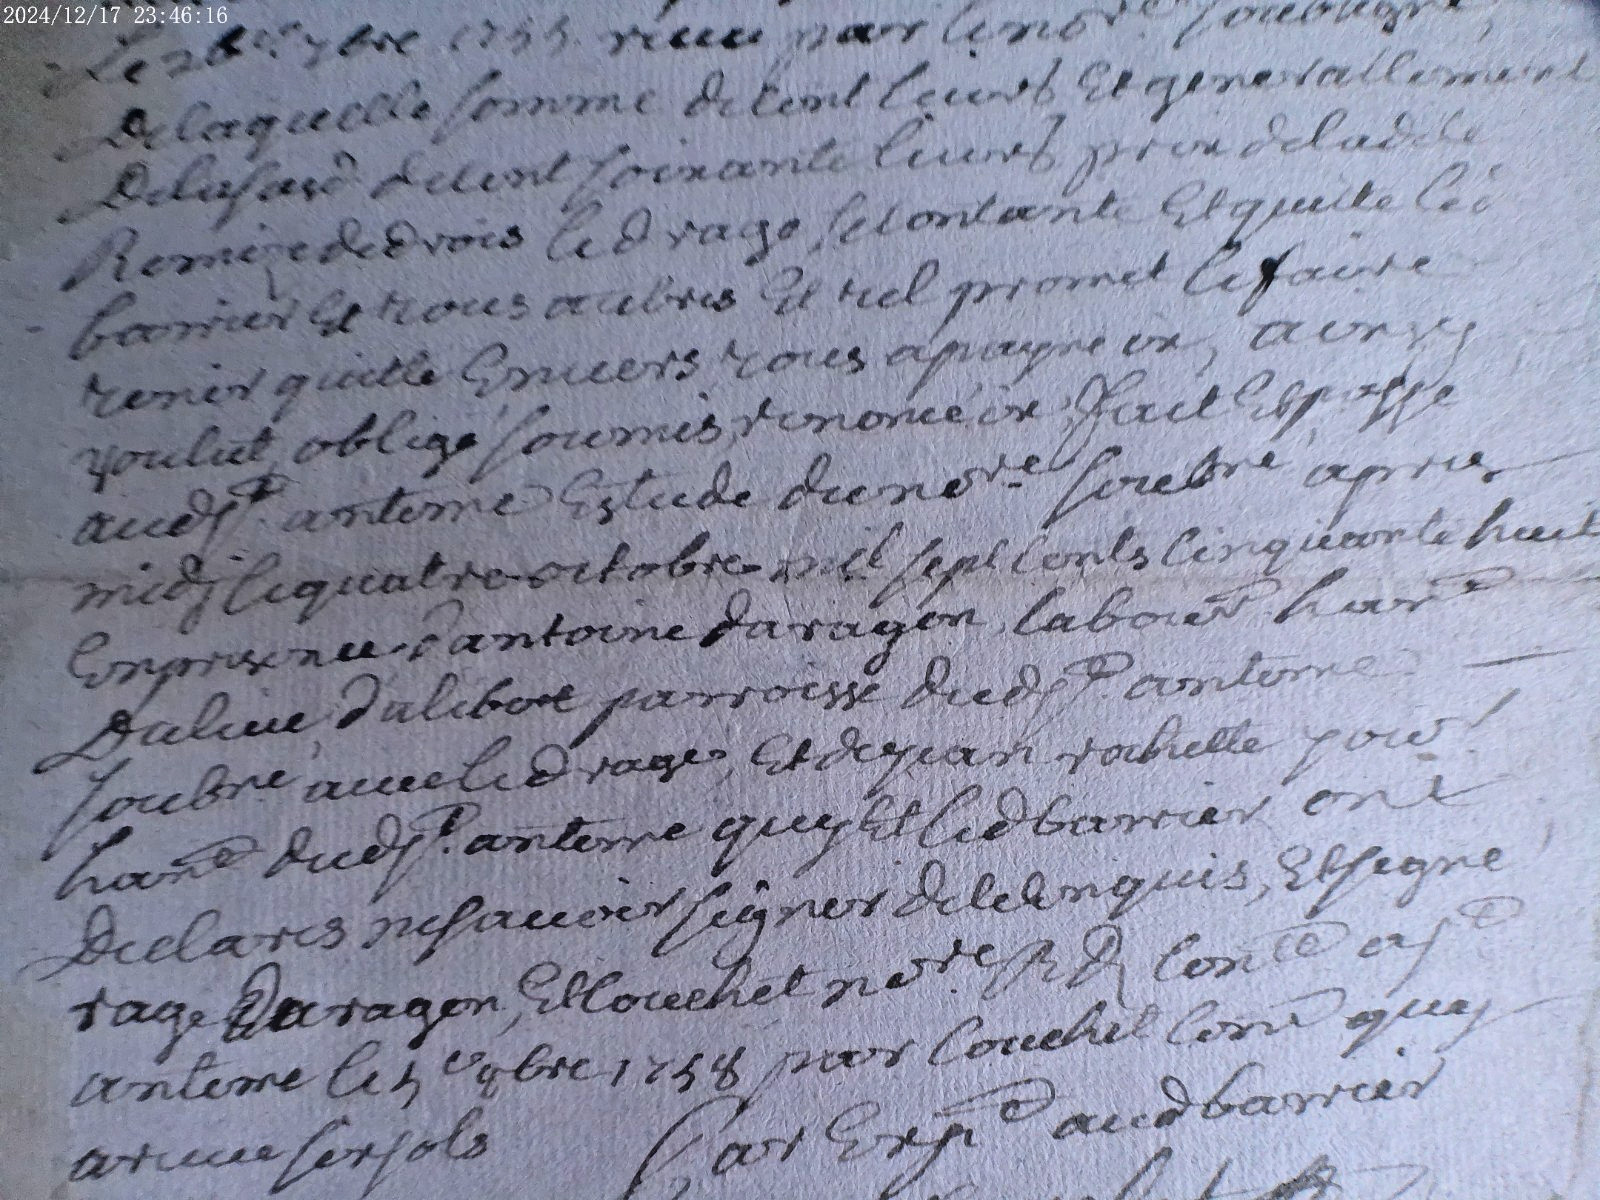 2024/12/17 23:46:16
Le 26e 7bre 1755 receu par le no.re soubsigné,
De laquelle somme de cent livres Et generallement
De la susd. de cent soixante livres prix de lad. de
Remize de drois led rage, se contante Et quitte led
barrier Et tous autres Et tiel promet le faire
tenir quitte Envers tous a payne ex, ainsy
voulut, obligé soumis, renoncé ex, fait Et passé
aud st. antome Estude du no.re soubné apres
midy le quatre octobre mil sept cents cinquante huit
En presence d'antoine daragon, labour. hant
Du lieu, parroisse dud st. antome
soubné avec led rage, Et de jean rochette
hant dud st. antome quy Et led barrier ont
Declarés ne scavoir signer de ce Enquis, Et signé
rage Daragon, Et louchet no.re
antome le 5e 8bre 1758 par louchet quy
a receu sols
Par Exp.on aud barrier